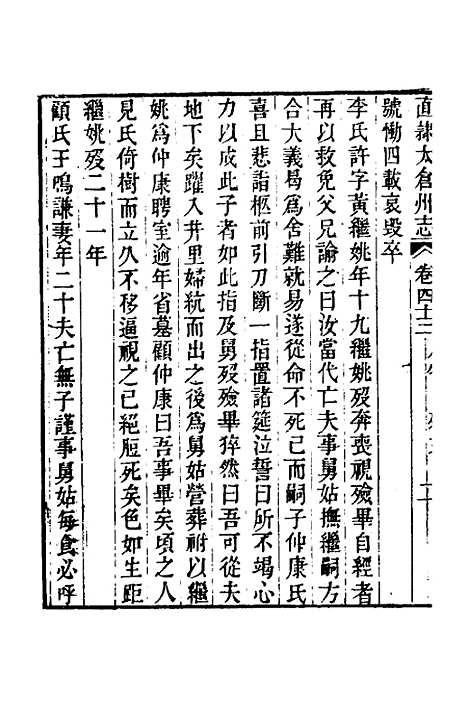 直隸太倉州志 卷四十三
號慟四載哀毀卒
李氏許字黃繼姚年十九繼姚歿奔喪視殮畢自經者
再以救免父兄諭之曰汝當代亡夫事舅姑撫繼嗣方
合大義曷為舍難就易遂從命不死已而嗣子仲康氏
喜且悲詣柩前引刀斷一指置諸筵泣誓曰所不竭心
力以成此子者有如此指及舅歿殮畢猝然曰吾可從夫
地下矣躍入井里婦綆而出之後為舅姑營葬祔以繼
姚為仲康聘室逾年省墓顧仲康曰吾事畢矣頃之人
見氏倚樹而立久不移逼視之已絕脰死矣色如生距
繼姚歿二十一年
顧氏王鳴謙妻年二十夫亡無子謹事舅姑每食必呼